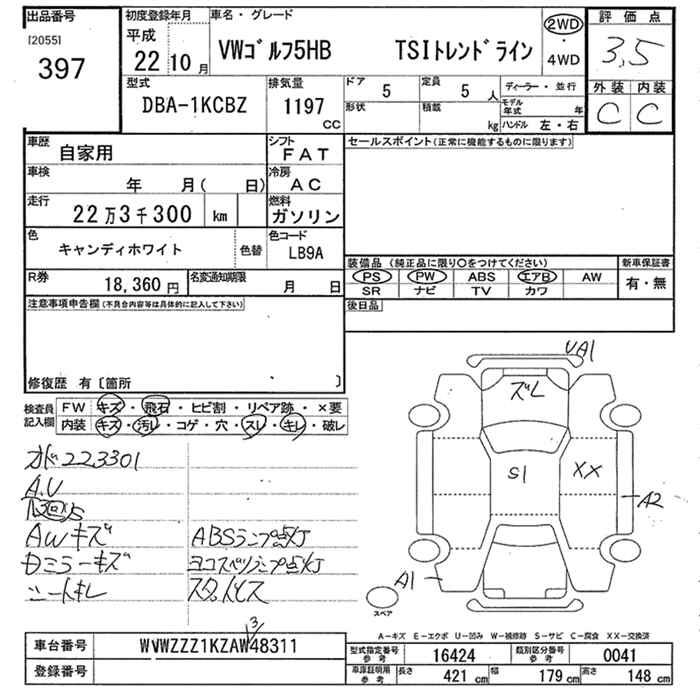 出品番号
[2055]
397
初度登録年月
平成
22年 10月
車名・グレード
VWゴルフ5HB TSIトレンドライン
2WD
・
4WD
評価点
3,5
外装 内装
C C
型式
DBA-1KCBZ
排気量
1197
CC
ドア
5
定員
5 人
形状
積載
kg
ディーラー・並行
モデル年式 年
ハンドル 左・右
車歴
自家用
シフト
FAT
セールスポイント(正常に機能するものに限ります)
車検
年 月( 日)
冷房
AC
走行
22万3千300 km
燃料
ガソリン
色
キャンディホワイト
色替
色コード
LB9A
装備品(純正品に限り○をつけてください)
新車保証書
PS PW ABS エアB AW
有・無
SR ナビ TV カワ
R券
18,360円
名変通知期限
月 日
注意事項申告欄(不具合内容等は具体的に記入して下さい)
後日品
修復歴 有〔箇所 〕
検査員記入欄
FW キズ・飛石・ヒビ割・リペア跡・×要
内装 キズ・汚レ・コゲ・穴・スレ・キレ・破レ
オド223301
A.U
AWキズ
ABSランプ点灯
Dミラーキズ
ヨコスベリランプ点灯
シートキレ
スタットレス
UA1
ズレ
S1
XX
A2
A1
スペア
A-キズ E-エクボ U-凹み W-補修跡 S-サビ C-腐食 XX-交換済
3
車台番号
WVWZZZ1KZAW48311
登録番号
型式指定番号
参考
16424
類別区分番号
参考
0041
車庫証明用
参考
長さ
421 cm
幅
179 cm
高さ
148 cm